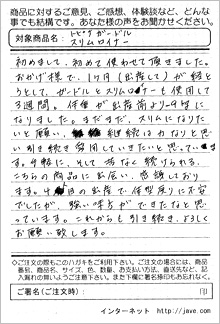 商品に対するご意見、ご感想、体験談など、どんな
事でも結構です。あなた様の声をお聞かせください。
対象商品名: トピーズガードル
スリムロイナー
初めまして、初めて使わせて頂きました。
おかげ様で、1ヶ月(出産して)が経と
うとして、ガードルとスリムロイナーも使用して
3週間。体重が出産前より-9㎏に
なりました。まだまだ、スリムになりたい
と願い、継続は力なりと思
い引き続き愛用していきたいと思っていま
す。手軽に、そして苦なく続けられる
こちらの商品に出会い、感謝しており
ます。4回目の出産で体型戻りに不安
でしたが、強い味方ができたなと思
っています。これからも引き続き、よろしく
お願い致します。
◇ご注文の際もこのハガキをご利用下さい。ご注文の場合には、商品
番号、商品名、サイズ、色、数量、お支払い方法、直送先など、記
入漏れのない様ご注意下さい。また下欄に署名捺印もお忘れなく。
◇ご署名(ご注文時): 印
インターネット http://jave.com